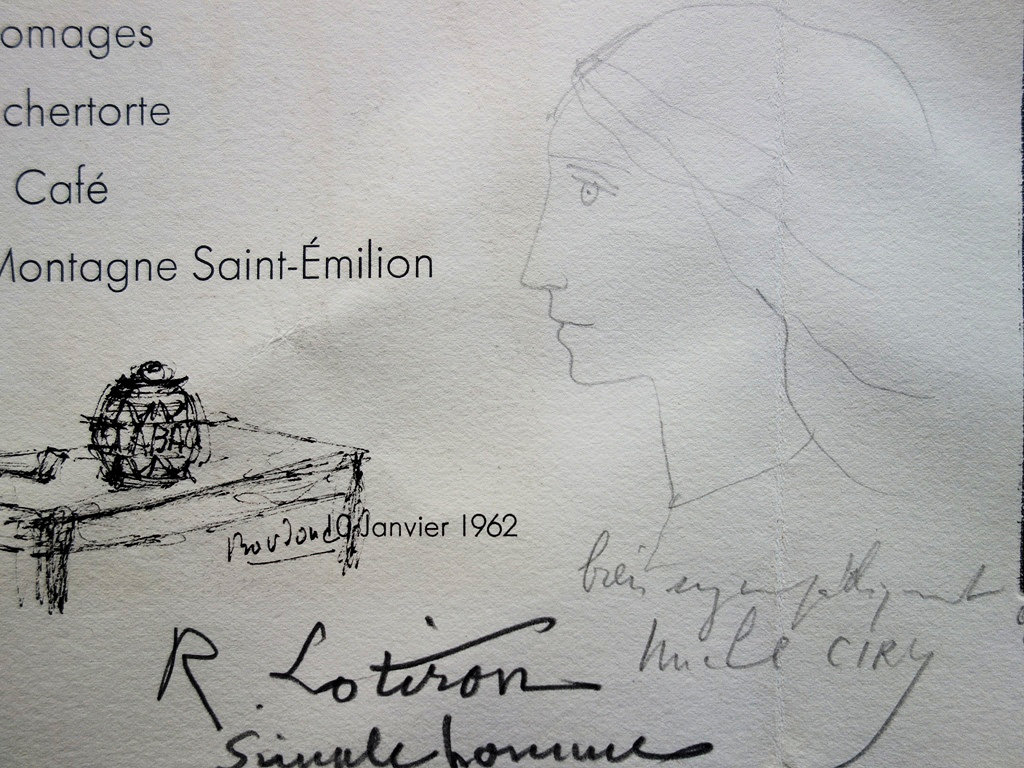 omages
chertorte
Café
Montagne Saint-Émilion
BA
Janvier 1962
bien sympathiquement
Michel CIRY
R. Lotiron
Simple homme